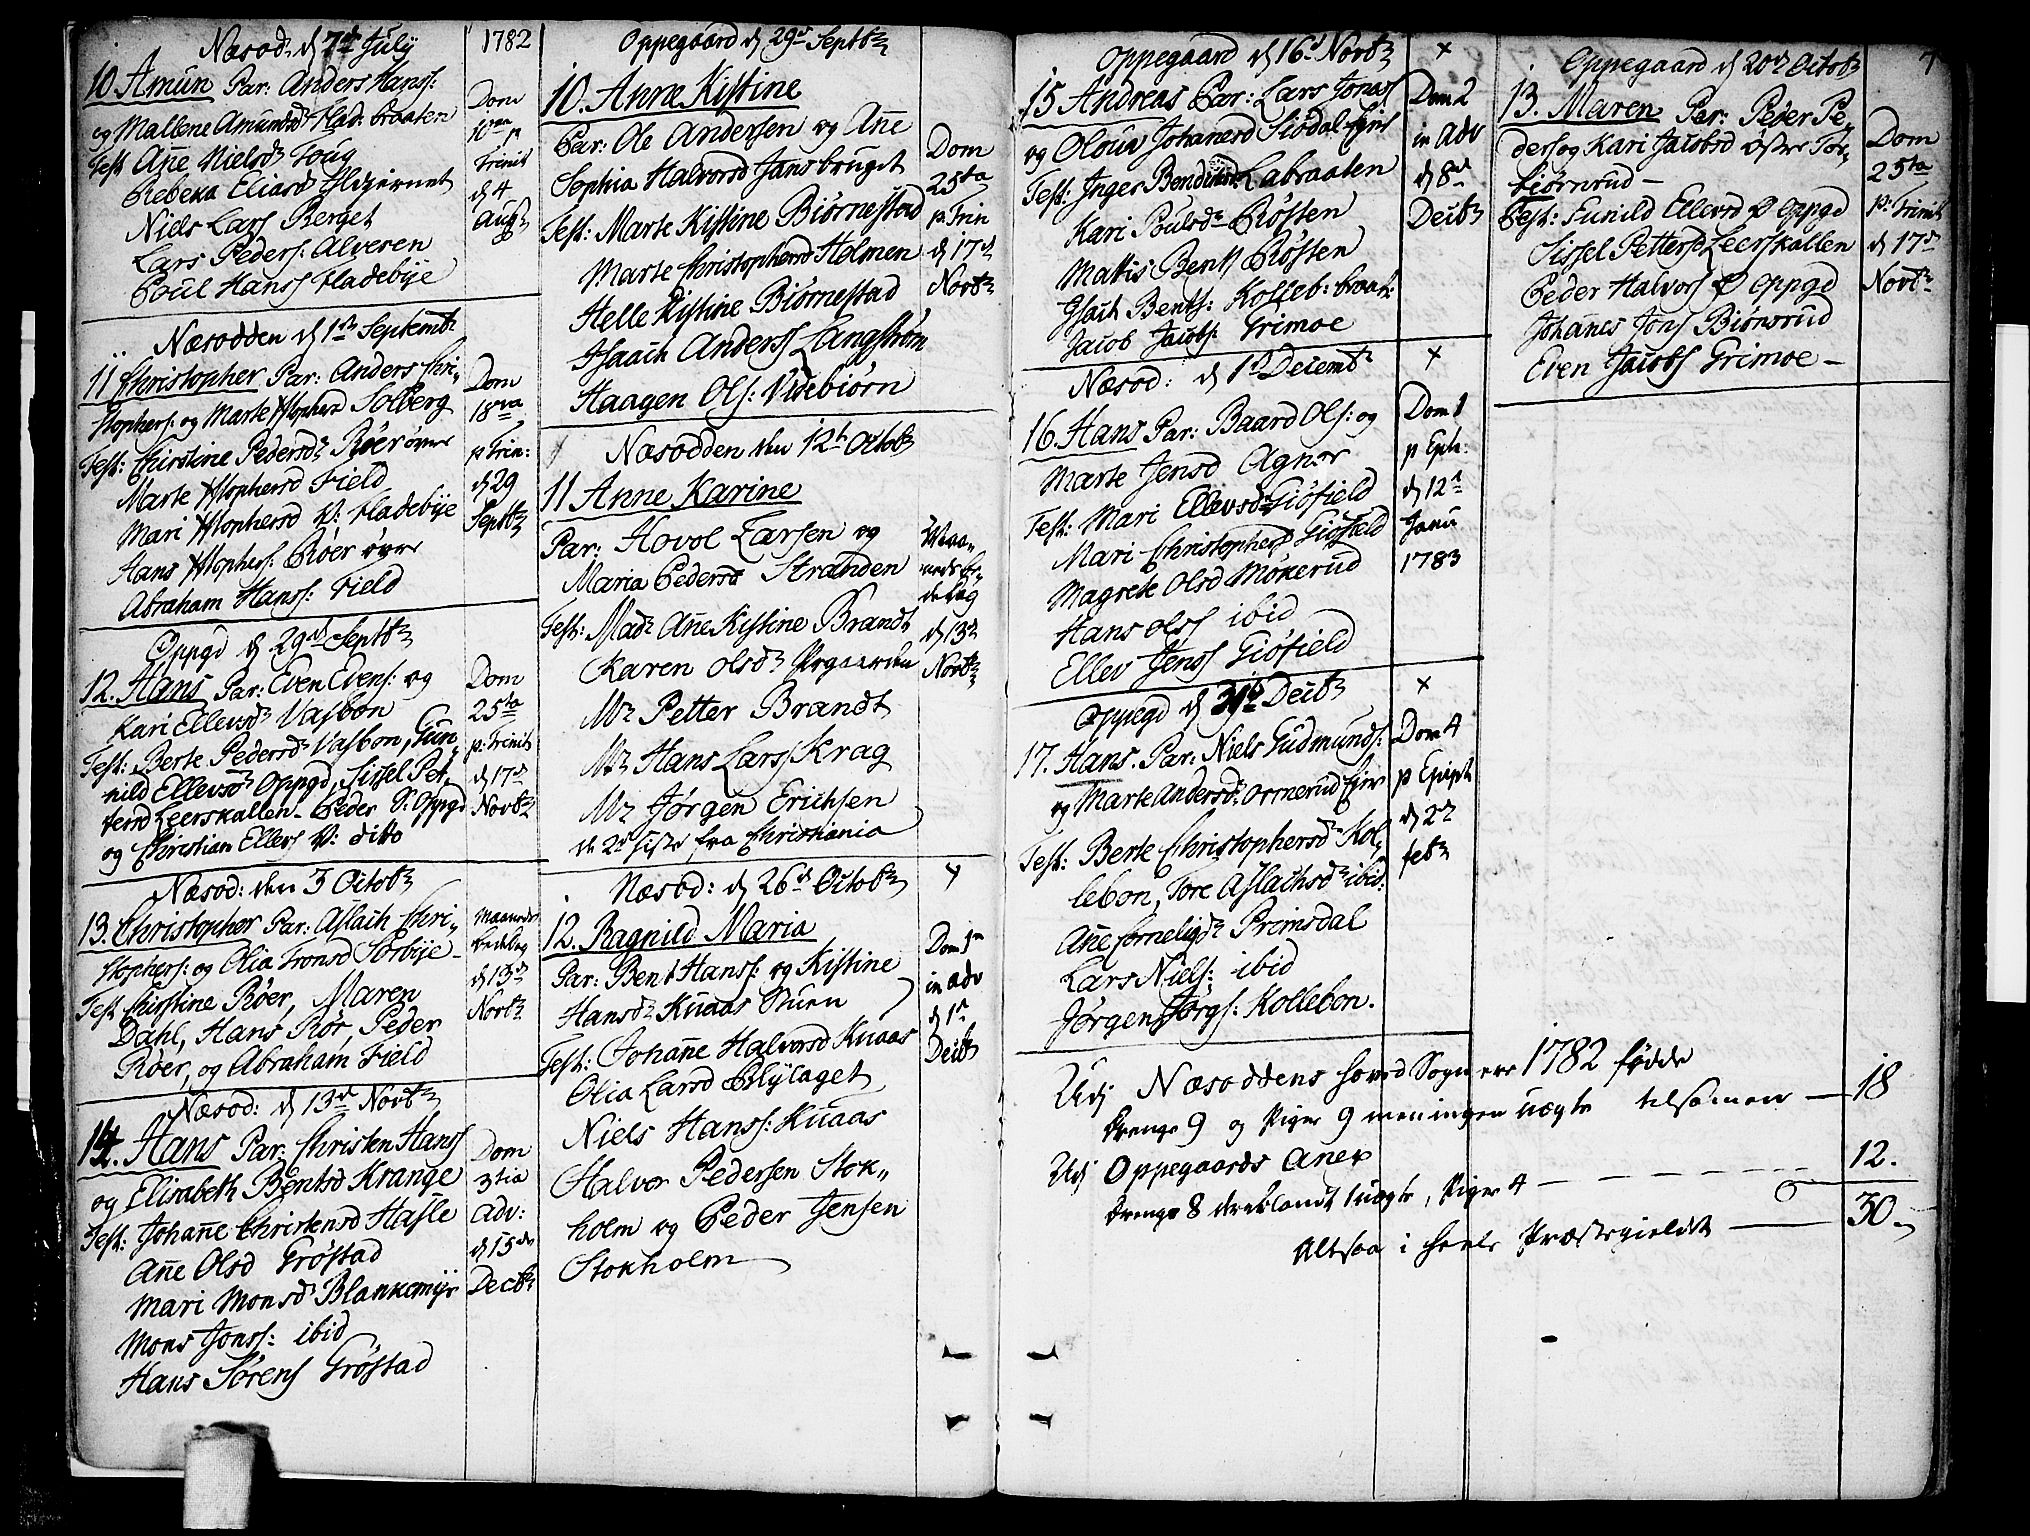 Næsod: d 7de July
10 Amun Par: Anders Hanss:
og Mallene Amundsd Flad: braaten
Test Añe Nielsd Toug
Rebeka Eliasd
Niels Larss Berget
Lars Pederss: Alveren
Poul Hanss Fladebÿe
1782
Dom
10ma p
Trinit
d 4
Augst
Næsodden d 1ste Septembr
11 Christopher Par: Anders Chri-
stophers: og Marte Xstophersd Solberg
Test: Christine Pedersdr Røer øvre
Marte Xstophersd Field
Mari Xstophersd V: Fladebÿe
Hans Xstophers: Røer øvre
Abraham Hanss: Field
Dom
18va
p Trin:
d 29
Septbr
Oppgd d 29de Septbr
12. Hans Par: Even Evens: og
Kari Ellevsdr Vasbon
Test: Berte Pedersdr Vasbon, Gun-
nild Ellevsdr Oppgd, Sissel Pet-
tersd Leerskallen- Peder Oppgd
og Christian Ellevs V: ditto
Dom
25ta
p: Trinit
d 17de
Novbr
Næsod: den 3 Octobr
13. Christopher Par: Aslach Chri-
stophers: og Olia Tronsd Sørbÿe-
Test Christine Røer, Maren
Dahl, Hans Rør, Peder
Røer, og Abraham Field
Maaneds
bededag
d 13de
Novbr
Næsod: d 13de Novbr
14. Hans Par: Christen Hanss
og Elisabeth Bentsd Krange
Test: Johañe Christensd Hasle
Añe Olsd Grøstad
Mari Monsdr Blankemÿr
Mons Jonss: ibid
Hans Sørens Grøstad
Dom
3tia
Adv:
d 15de
Decbr
Oppegaard d 29de Septbr
10. Anne Kistine
Par: Ole Andersen og Añe
Sophia Halvorsd Jansbruget
Test: Marte Kistine Biørnestad
Marte Christophersd Holmen
Helle Kistine Biørnestad
Isaach Anderss Langstrøm
Haagen Ols: Videbiørn
Dom
25ta
p: Trin
d 17de
Novbr
Næsodden den 12te Octobr
11 Anne Karine
Par: Hovol Larsen og
Maria Pedersd Stranden
Test: Madr Añe Kistine Brandt
Karen Olsdr
Mr Petter Brandt
Mr Hans Larss Krag
Mr Jørgen Erichsen
de 2de siste fra Christiania
Maa-
neds be-
dedag
d 13de
Novbr
Næsod: d 26de Octobr
12. Ragnild Maria
Par: Bent Hanss: og Kistine
Hansdr Knaas Stuen
Test: Johañe Halvorsd Knaas
Olia Larsd Blÿlaget
Niels Hanss: Knaas
Halvor Pedersen Stok-
holm og Peder Jensen
Stokholm
Dom 1ma
in adv
d 1te
Decbr
Oppegaard d 16de Novbr
15 Andreas Par: Lars Jonass
og Oloug Johanesd Siødal
Test: Inger Labraaten
Kari Poulsdr Røsten
Mattis Bents Røsten
Isach Bents: Kolleb: braat:
Jacob Jacobs: Grimoe
Dom 2
in Adv
d 8de
Decbr
Næsod: d 1te Decembr
16. Hans Par: Baard Ols: og
Marte Jensd Agnør
Test: Mari Ellevsdr Giøfield
Mari Christophersd Giøfield
Magrete Olsd Møkerud
Hans Olss ibid
Ellev Jenss Giøfield
Dom 1
p Eph:
d 12te
Janu
1783
Oppegd d Decbr
17. Hans. Par: Niels Gudmunds:
og Marte Andersdr Ormerud
Test: Berte Christophersdr Kol-
lebon, Tore Aslachsdr ibid:
Añe Corneligdr Primsdal
Lars Niels: ibid
Jørgen Jørgs: Kollebon.
Dom 4
p Epiph
d 2de
febr
Oppegaard d 20de Octobr
7
13. Maren Par: Peder Pe-
ders og Kari Jacobsd østre Tor-
biørnrud-
Test: Gunild Ellevsd Ø Oppgd
Sissel Pettersd Leerskallen
Peder Halvors Ø Oppgd
Johañes Jons Biønsrud
Even Jacobs Grimoe-
Dom
25ta
p: Trinit
d 17de
Novbr
Udj Næsoddens hoved Sogn ere 1782 fødde
Drenge 9 og Piger 9 men ingen uægte tilsamen — 18
Udj Oppegaards Anex
Drenge 8 deriblandt 1 uægte, Piger 4 — 12.
Altsaa i heele Præstegieldet — 30.